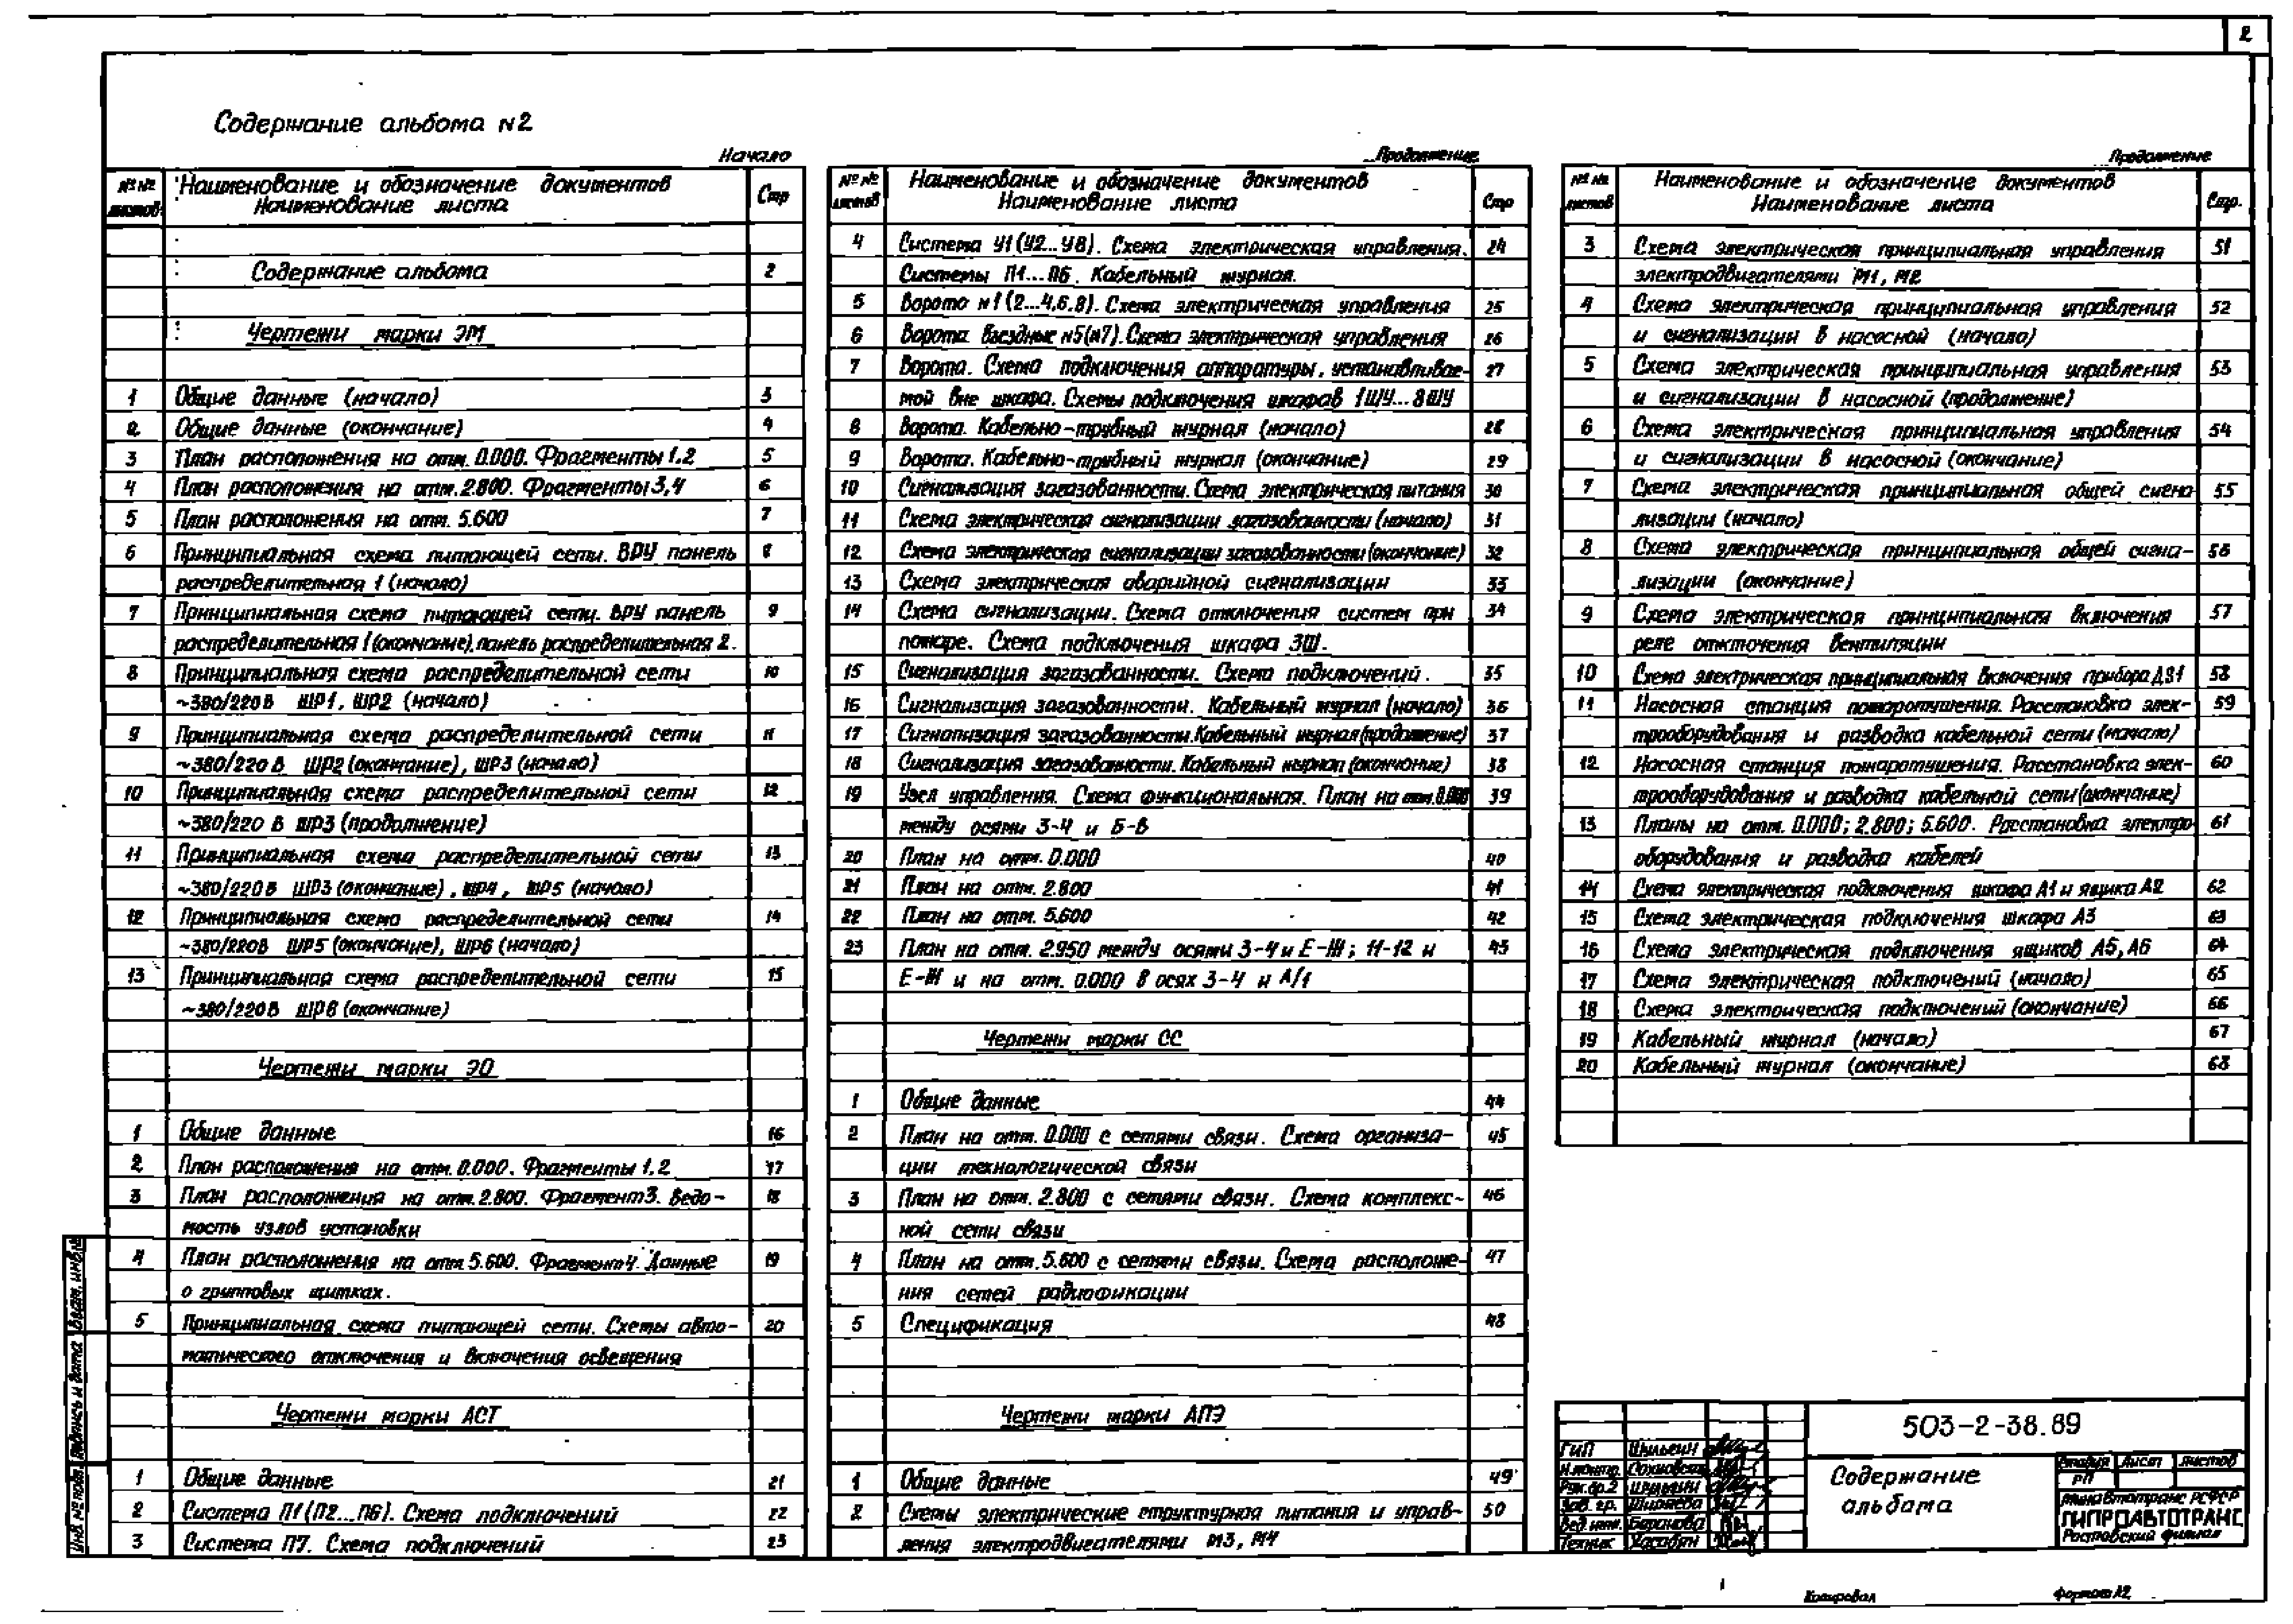 2
Содержание альбома №2
Начало
№№ листов Наименование и обозначение документов Наименование листа Стр
Содержание альбома 2
Чертежи марки ЭМ
1 Общие данные (начало) 3
2 Общие данные (окончание) 4
3 План расположения на отм. 0.000. Фрагменты 1.2 5
4 План расположения на отм. 2.800. Фрагменты 3,4 6
5 План расположения на отм. 5.600 7
6 Принципиальная схема питающей сети. ВРУ панель 8
распределительная 1 (начало)
7 Принципиальная схема питающей сети. ВРУ панель 9
распределительная 1 (окончание), панель распределительная 2.
8 Принципиальная схема распределительной сети 10
~380/220В ШР1, ШР2 (начало)
9 Принципиальная схема распределительной сети 11
~380/220 В ШР2 (окончание), ШР3 (начало)
10 Принципиальная схема распределительной сети 12
~380/220 В ШР3 (продолжение)
11 Принципиальная схема распределительной сети 13
~380/220 В ШР3 (окончание), ШР4, ШР5 (начало)
12 Принципиальная схема распределительной сети 14
~380/220В ШР5 (окончание), ШР6 (начало)
13 Принципиальная схема распределительной сети 15
~380/220В ШР6 (окончание)
Чертежи марки ЭО
1 Общие данные 16
2 План расположения на отм. 0.000. Фрагменты 1.2 17
3 План расположения на отм. 2.800. Фрагмент 3. Ведо- 18
мость узлов установки
4 План расположения на отм 5.600. Фрагмент 4. Данные 19
о групповых щитках.
5 Принципиальная схема питающей сети. Схемы авто- 20
матического отключения и включения освещения
Чертежи марки АСТ
1 Общие данные 21
2 Система П1 (П2...П6). Схема подключений 22
3 Система П7. Схема подключений 23
Продолжение
№№ листов Наименование и обозначение документов Наименование листа Стр
4 Система У1 (У2...У8). Схема электрическая управления. 24
Системы П1...П6. Кабельный журнал.
5 Ворота №1 (2...4,6,8). Схема электрическая управления 25
6 Ворота въездные №5(№7). Схема электрическая управления 26
7 Ворота. Схема подключения аппаратуры, устанавливае- 27
мой вне шкафа. Схемы подключения шкафов 1ШУ...8ШУ
8 Ворота. Кабельно-трубный журнал (начало) 28
9 Ворота. Кабельно-трубный журнал (окончание) 29
10 Сигнализация загазованности. Схема электрическая питания 30
11 Схема электрическая сигнализации загазованности (начало) 31
12 Схема электрическая сигнализации загазованности (окончание) 32
13 Схема электрическая аварийной сигнализации 33
14 Схема сигнализации. Схема отключения систем при 34
пожаре. Схема подключения шкафа 3Ш.
15 Сигнализация загазованности. Схема подключений. 35
16 Сигнализация загазованности. Кабельный журнал (начало) 36
17 Сигнализация загазованности. Кабельный журнал (продолжение) 37
18 Сигнализация загазованности. Кабельный журнал (окончание) 38
19 Узел управления. Схема функциональная. План на отм. 0.000 39
между осями 3-4 и Б-В
20 План на отм. 0.000 40
21 План на отм. 2.800 41
22 План на отм. 5.600 42
23 План на отм. 2.950 между осями 3-4 и Е-Ж; 11-12 и 43
Е-Ж и на отм. 0.000 в осях 3-4 и А/1
Чертежи марки СС
1 Общие данные 44
2 План на отм. 0.000 с сетями связи. Схема организа- 45
ции технологической связи
3 План на отм. 2.800 с сетями связи. Схема комплекс- 46
ной сети связи
4 План на отм. 5.600 с сетями связи. Схема расположе- 47
ния сетей радиофикации
5 Спецификация 48
Чертежи марки АПЭ
1 Общие данные 49
2 Схемы электрические структурная питания и управ- 50
ления электродвигателями М3, М4
Продолжение
№№ листов Наименование и обозначение документов Наименование листа Стр.
3 Схема электрическая принципиальная управления 51
электродвигателями М1, М2
4 Схема электрическая принципиальная управления 52
и сигнализации в насосной (начало)
5 Схема электрическая принципиальная управления 53
и сигнализации в насосной (продолжение)
6 Схема электрическая принципиальная управления 54
и сигнализации в насосной (окончание)
7 Схема электрическая принципиальная общей сигна- 55
лизации (начало)
8 Схема электрическая принципиальная общей сигна- 56
лизации (окончание)
9 Схема электрическая принципиальная включения 57
реле отключения вентиляции
10 Схема электрическая принципиальная включения прибора ДЗ1 58
11 Насосная станция пожаротушения. Расстановка элек- 59
трооборудования и разводка кабельной сети (начало)
12 Насосная станция пожаротушения. Расстановка элек- 60
трооборудования и разводка кабельной сети (окончание)
13 Планы на отм. 0.000; 2.800; 5.600. Расстановка электро- 61
оборудования и разводка кабелей
14 Схема электрическая подключения шкафа А1 и ящика А2 62
15 Схема электрическая подключения шкафа А3 63
16 Схема электрическая подключения ящиков А5, А6 64
17 Схема электрическая подключений (начало) 65
18 Схема электрическая подключений (окончание) 66
19 Кабельный журнал (начало) 67
20 Кабельный журнал (окончание) 68
Инв. № подл. Подпись и дата Взам. инв.№
503-2-38.89
ГИП Шульгин
Н.контр.
Рук.бр.2 Шульгин
Зав. гр. Ширяева
Вед. инж. Баранова
Техник
Содержание
альбома
Стадия Лист Листов
РП
Минавтотранс РСФСР
ГИПРОАВТОТРАНС
Ростовский филиал
Копировал
Формат А2